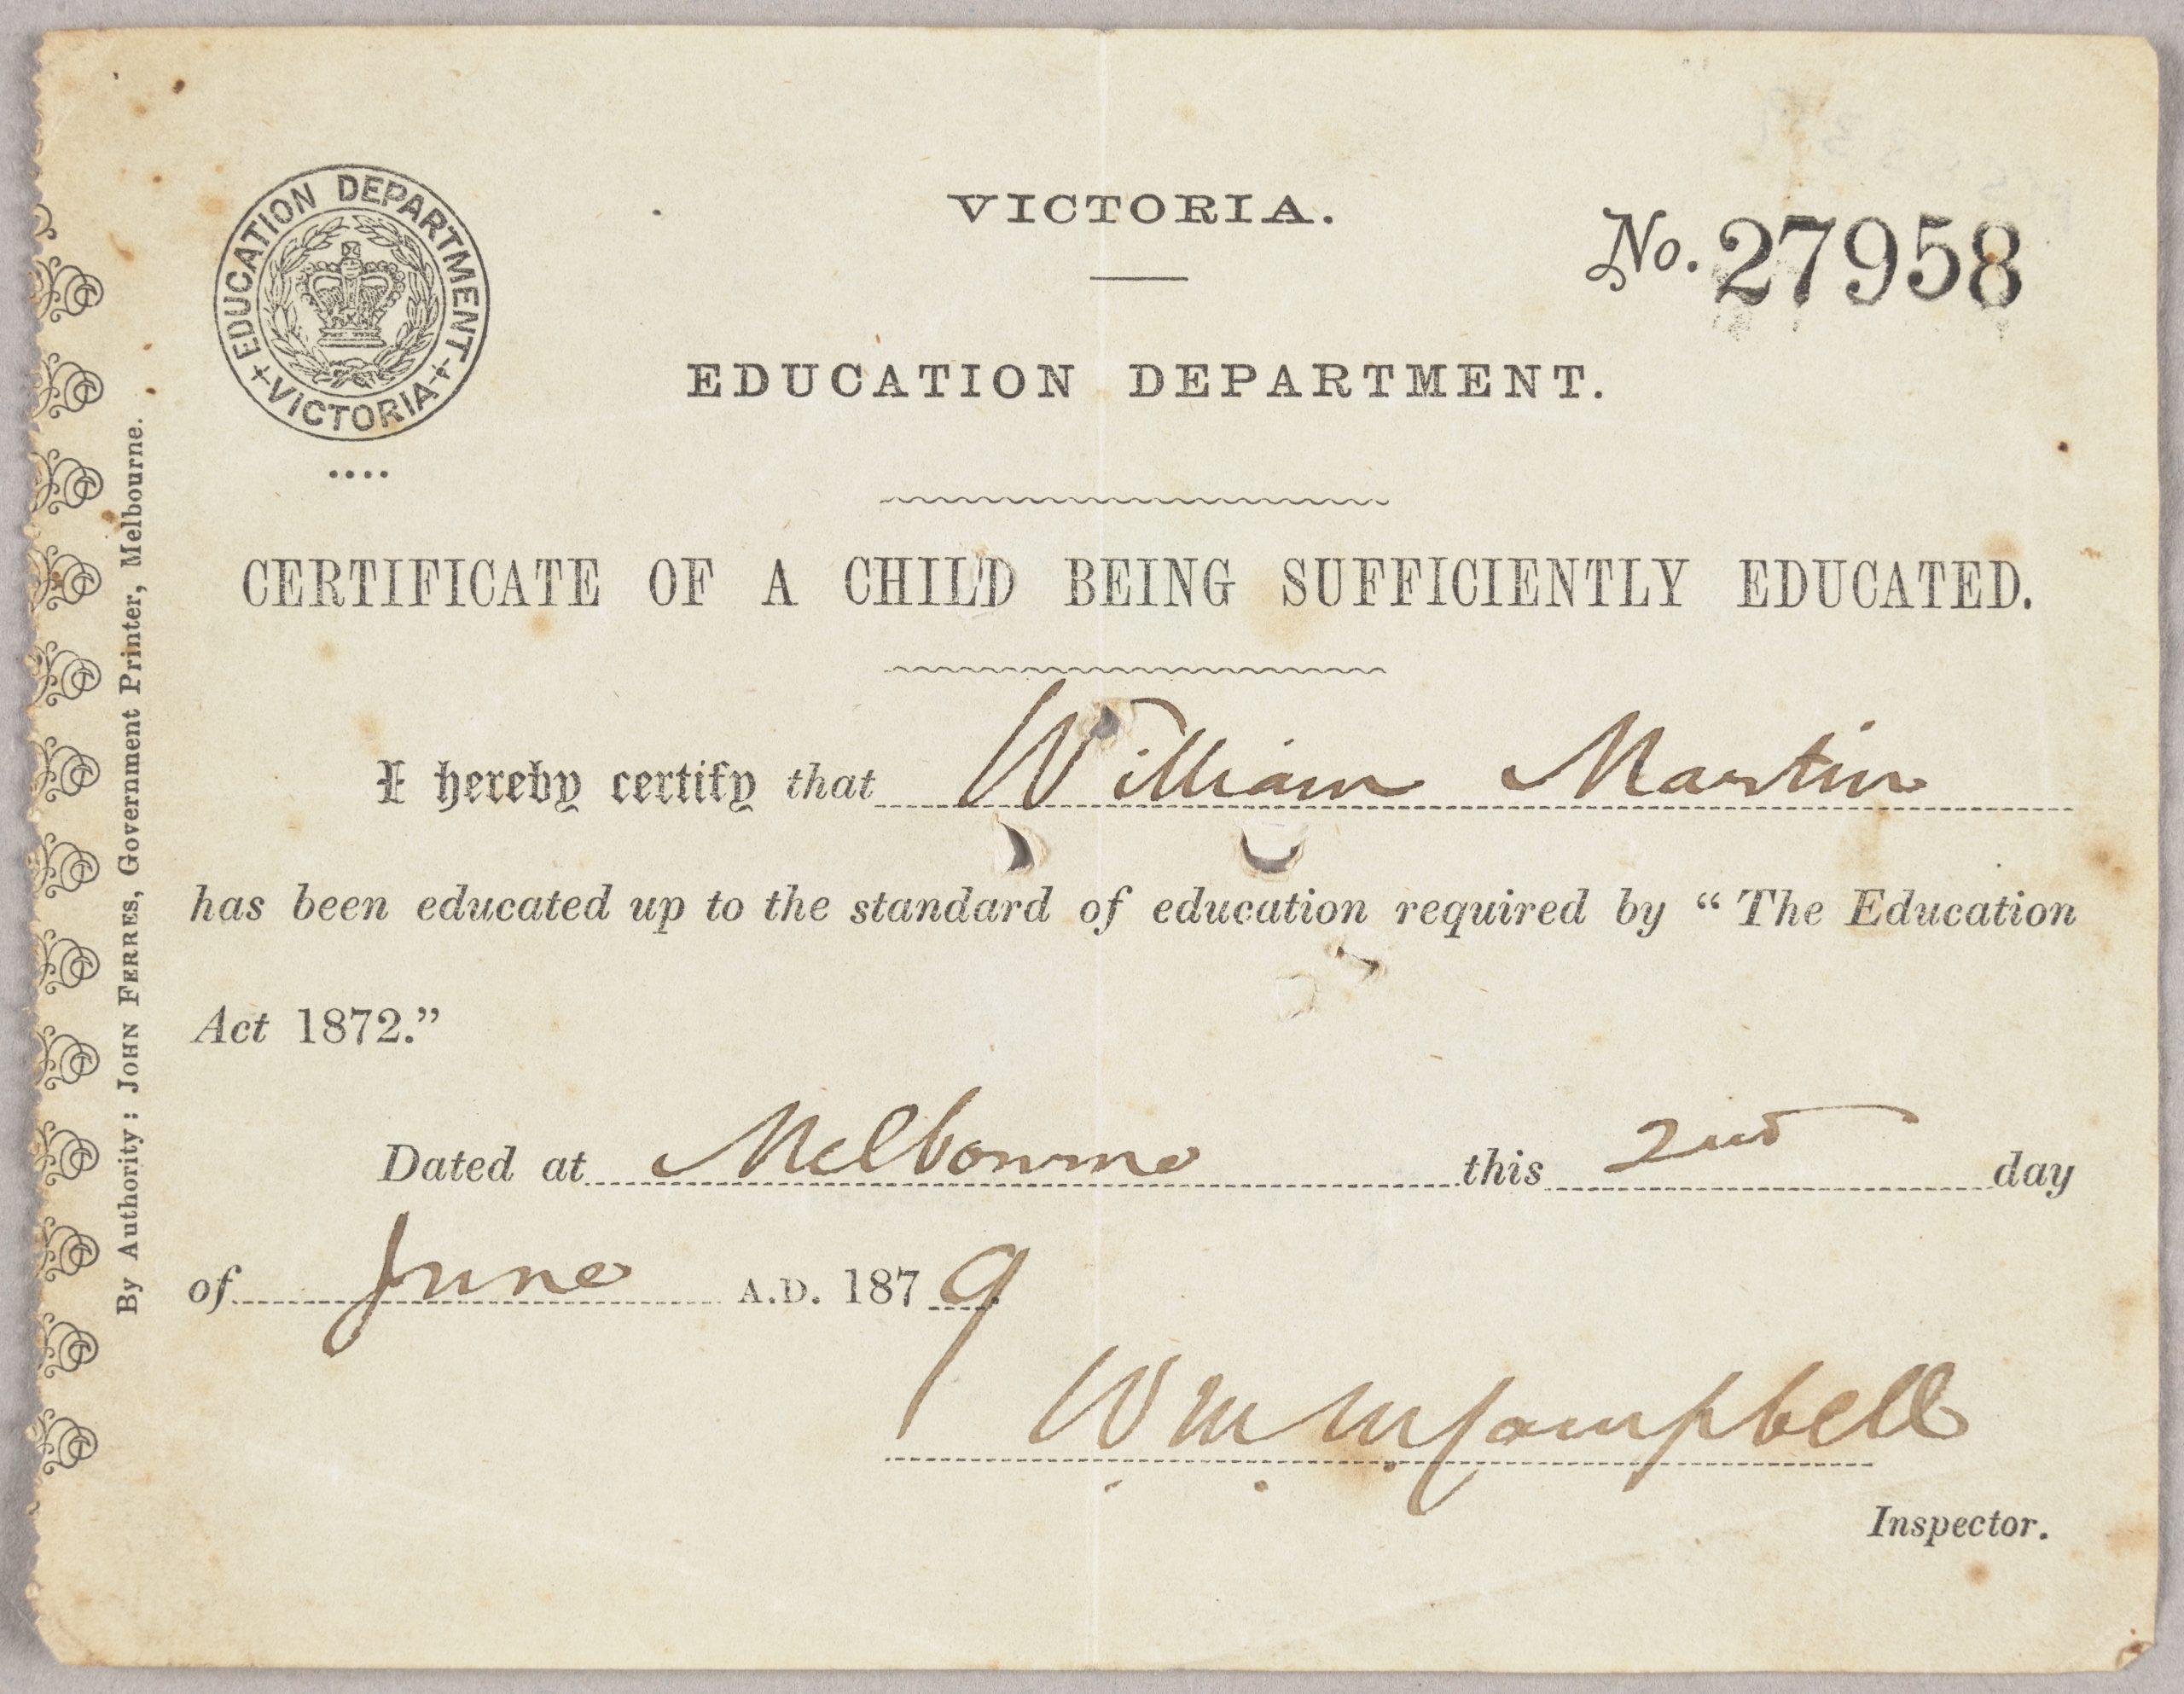 EDUCATION DEPARTMENT
VICTORIA
VICTORIA.
No. 27958
EDUCATION DEPARTMENT.
CERTIFICATE OF A CHILD BEING SUFFICIENTLY EDUCATED.
I hereby certify that William Martin
has been educated up to the standard of education required by “The Education
Act 1872.”
Dated at Melbourne this 2nd day
of June A.D. 1879.
Campbell
Inspector.
By Authority: JOHN FERRES, Government Printer, Melbourne.